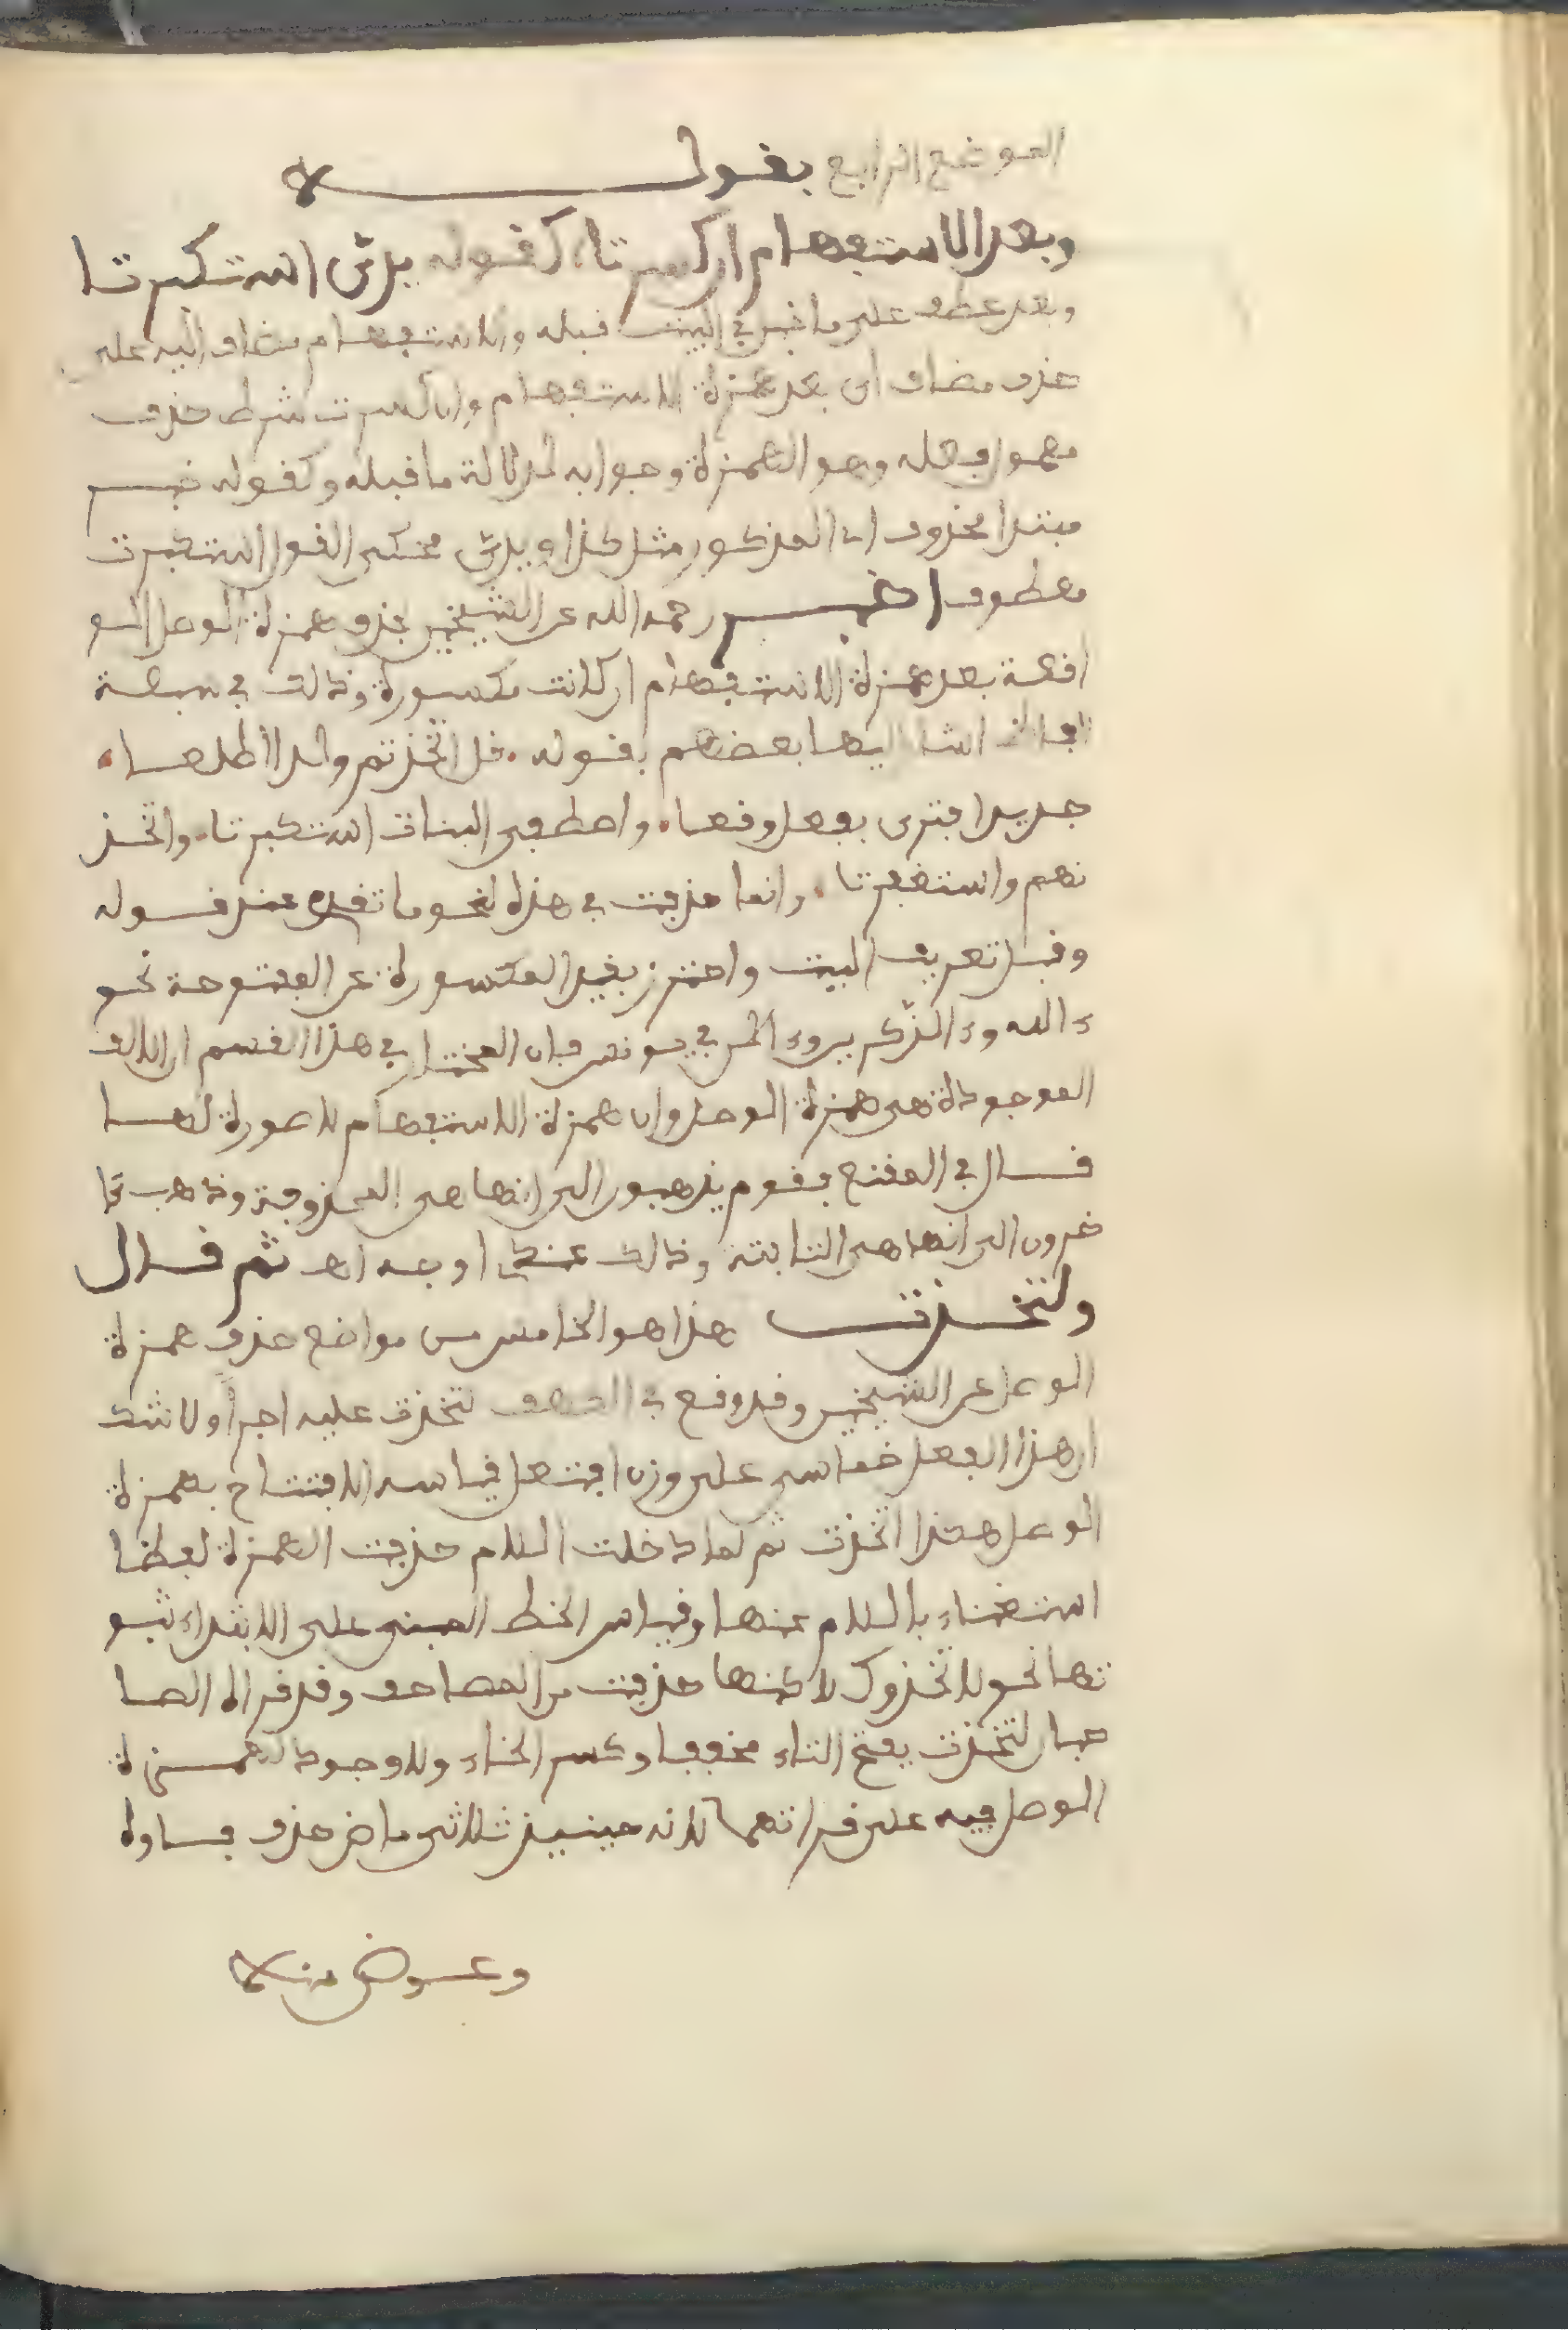 الموضع الرابع بقوله
وبعد الاستفهام ان كسرتا كقوله بدئ استكبرتا
وبعد عطف على ما خبر في البيت قبله والاستفهام مضاف اليه على
حذف مضاف اي بعد همزة الاستفهام وان كسرت شرط حذف
معمول فعله وهو الهمزة وجوابه لدلالة ما قبله وكقوله خبر
مبتدا محذوف اي المذكور مثل كذا وبدئ محكي القول استكبرت
معطوف اخبر رحمه الله عن الشيخين بحذف همزة الوصل الو
اقعة بعد همزة الاستفهام ان كانت مكسورة وذالك في سبعة
افعال اشا اليها بعضهم بقوله قل اتخذتم ولدا اطلعا
جديد افترى بفعل وقعا واصطفى البنات استكبرتا واتخذ
نهم واستغفرتا وانما حذفت في هذه لنحو ما تقدم عند قوله
وقبل تعريف البيت واحترز بقيد المكسورة عن المفتوحة نحو
ءالله وءالذكرين وءالن في يونس فان المختار في هذا القسم ان الالف
الموجودة هي همزة الوصل وان همزة الاستفهام لا صورة لها
قال في المقنع بقوم يذهبون الى انها هي المحذوفة وذهب ءا
خرون الى انها هي الثابتة وذالك عندي اوجه اهـ ثم قال
ولتخذت هذا هو الخامس من مواضع حذف همزة
الوصل عن الشيخين وقد وقع في الكهف لتخذت عليه اجرا ولا شك
ان هذا الفعل خماسي على وزن افتعل قياسه الافتتاح بهمزة
الوصل هكذا اتخذت ثم لما دخلت اللام حذفت الهمزة لفظا
استغناء باللام عنها وقياس الخط المبني على الابتداء ثبو
تها نحو لاتخذوك لاكنها حذفت من المصاحف وقد قراه الصا
حبان لتخذت بفتح التاء مخففا وكسر الخاء ولا وجود لهمزة
الوصل فيه على قراتهما لانه حينيذ ثلاثي ماض حذف فاوه
وعوض منها